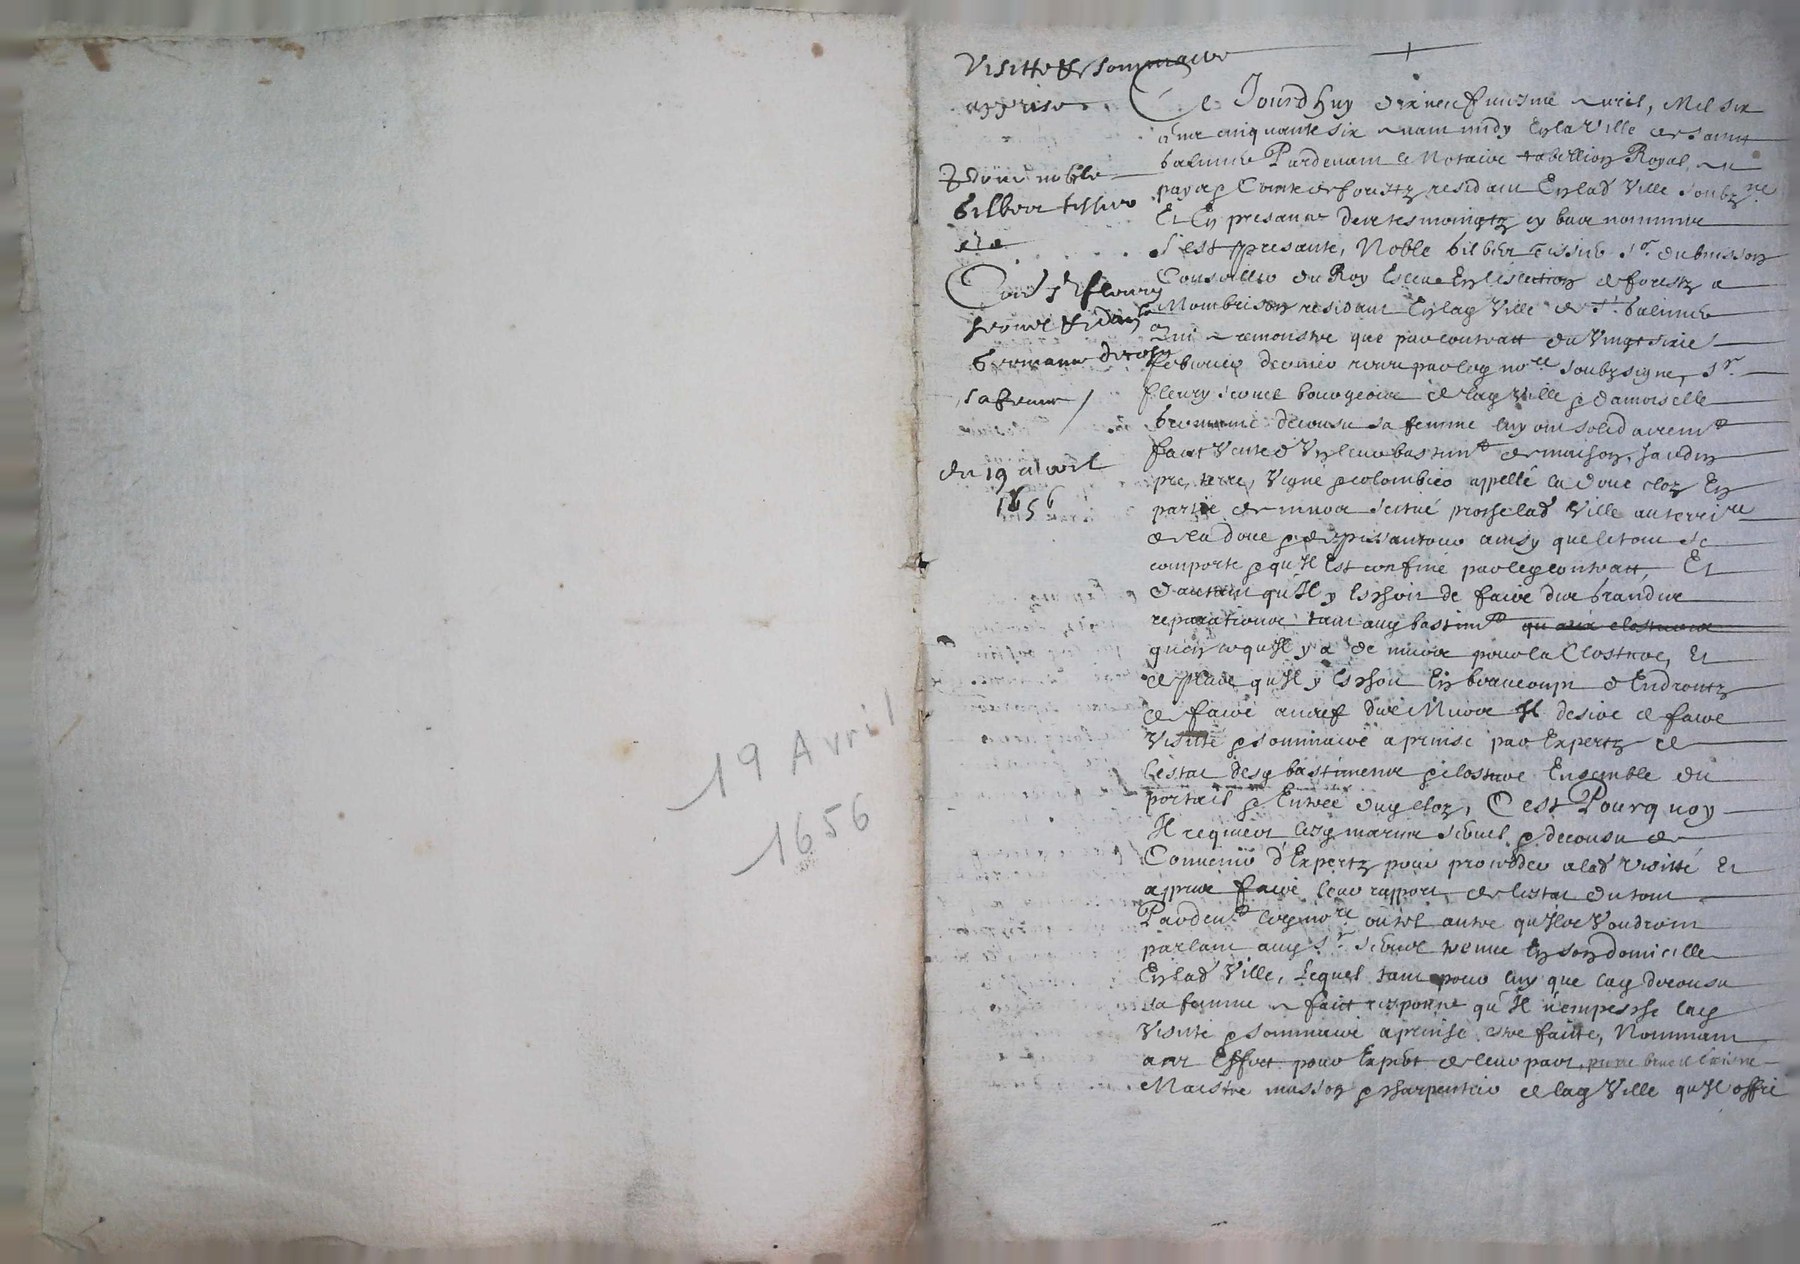 19 Avril
1656
Visitte et sommaire
apprise
Pour noble
Gilber tissier
et a
Con s.r fleury
et dam.le
sa femme /
du 19 avril
1656
Ce Jourdhuy dixneufviesme avril, Mil six
cens cinquante six avant midy En la Ville de saint
Galmier Pardevant le Notaire tabellion Royal au
pays et Comté de forestz residant En lad Ville soubz.ne
Et En presance des tesmoingtz cy bas nommes
s'est presante, Noble Gilber Tissier s.r du buisson
Conseiller du Roy Esleu En l'eslection de forestz a
Montbrison residant En lad Ville de s.t Galmier
Qui a remonstre que par contratt du Vingtsixie
febvrier dernier receu par led no.re soubzsigne, s.r
fleury bourgeois de lad Ville et damoiselle
decousu sa femme luy ont solidairem.t
fait Vente d'Un leur bastim.t de maison, Jardin
pre, terre, Vigne et colombier appellé la doue cloz En
partie de murs scitué prosche lad Ville au terroi.re
de la doue et ainsy que le tout se
comporte et qu'Il Est confiné par led contratt, Et
d'autant qu'Il y Eschoit de faire des Grandes
reparations tant aud bastim.t qu aux clostures
qu'en ce qu'Il y a de murs pour la Closture, Et
de plus qu'Il y Eschoit En beaucoup d'Endroitz
de faire a neuf des Murs Il desire de faire
Visitte et sommaire aprinse par Expertz de
l'estat desd bastimens et closture Ensemble du
portail et Entree dud cloz, C'est Pourquoy
Il requiert lesd maries et decousu de
Convenir d'Expertz pour proceder a lad Visitté Et
apres faire leur rapport de l'estat du tout
Pardev.t led no.re ou tel autre qu'Ilz Voudront
parlant aud s.r treuve En son domicille
En lad Ville, Lequel tant pour luy que lad decousu
sa femme a fait responce qu'Il n'empesche lad
Visitte et sommaire aprinse estre faitte, Nommant
a cet Effect pour Expert de leur part
Maistre masson et charpentier de lad Ville qu'Il offre